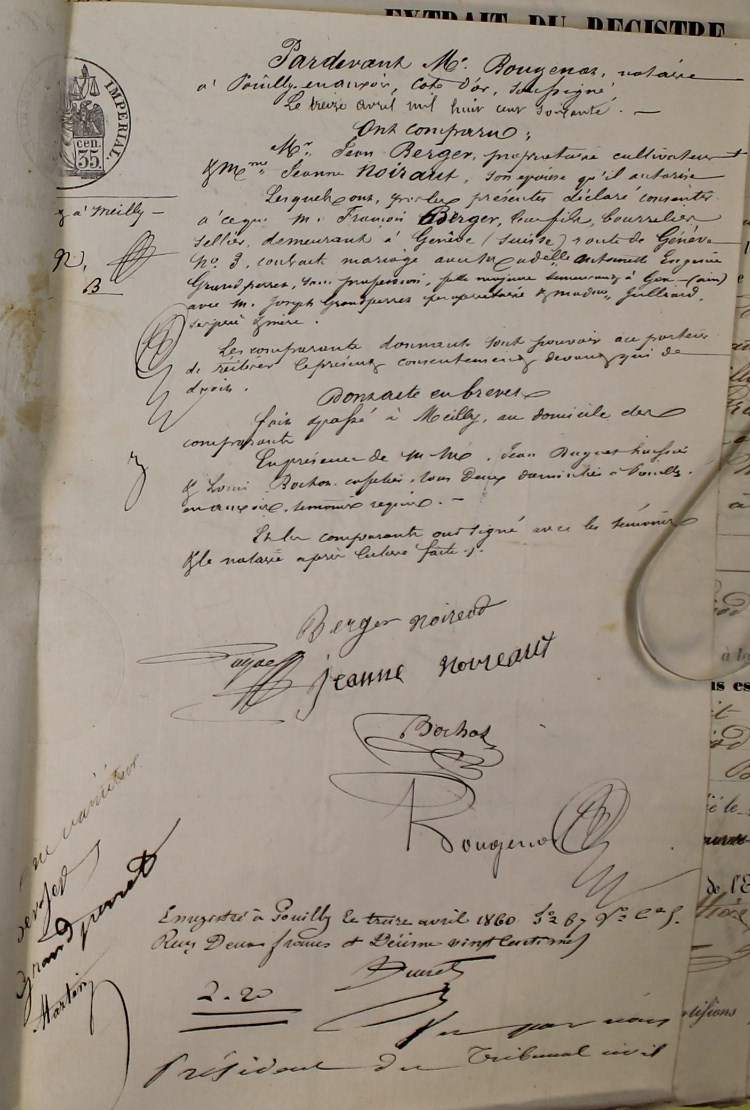 EXTRAIT DU REGISTRE
IMPERIAL.
cen.
35.
Pardevant Me. Bougenot, notaire
à Pouilly en auxois, Côte d'or, soussigné
Le treize avril mil huit cent soixante. —
Ont comparu,
Mr. Jean Berger, propriétaire cultivateur
& Mme Jeanne Noiraut, son épouse qu'il autorise
Lesquels ont, par les présentes déclaré consentir
à ce que M. François Berger, leur fils, bourrelier
sellier, demeurant à Genève (Suisse) route de Genève
No. 3, contracte mariage avec Antoinette Eugénie
Grandperret, sans profession, fille majeure demeurant à Gex (ain)
avec M. Joseph Grandperret propriétaire & madme
ses père & mère.
Les comparants donnent tout pouvoir au porteur
de réitérer le présent consentement devant qui de
droit.
Dont acte en brevet
fait & passé à Meilly, au domicile des
comparants
En présence de M. Me. Jean huissier
& Louis Bochot, cafetier, tous deux domiciliés à Pouilly
en auxois, témoins requis. —
Et les comparants ont signé avec les témoins
& le notaire après lecture faite.
à Meilly —
Berger noireot
jeanne noireaut
Bochot
Bougenot
ne varietur
berger
grandperret
Martin
Enregistré à Pouilly le treize avril 1860 fo 67
Reçu Deux francs et Décime vingt centimes
2-20
Vu par nous
Président du Tribunal civil